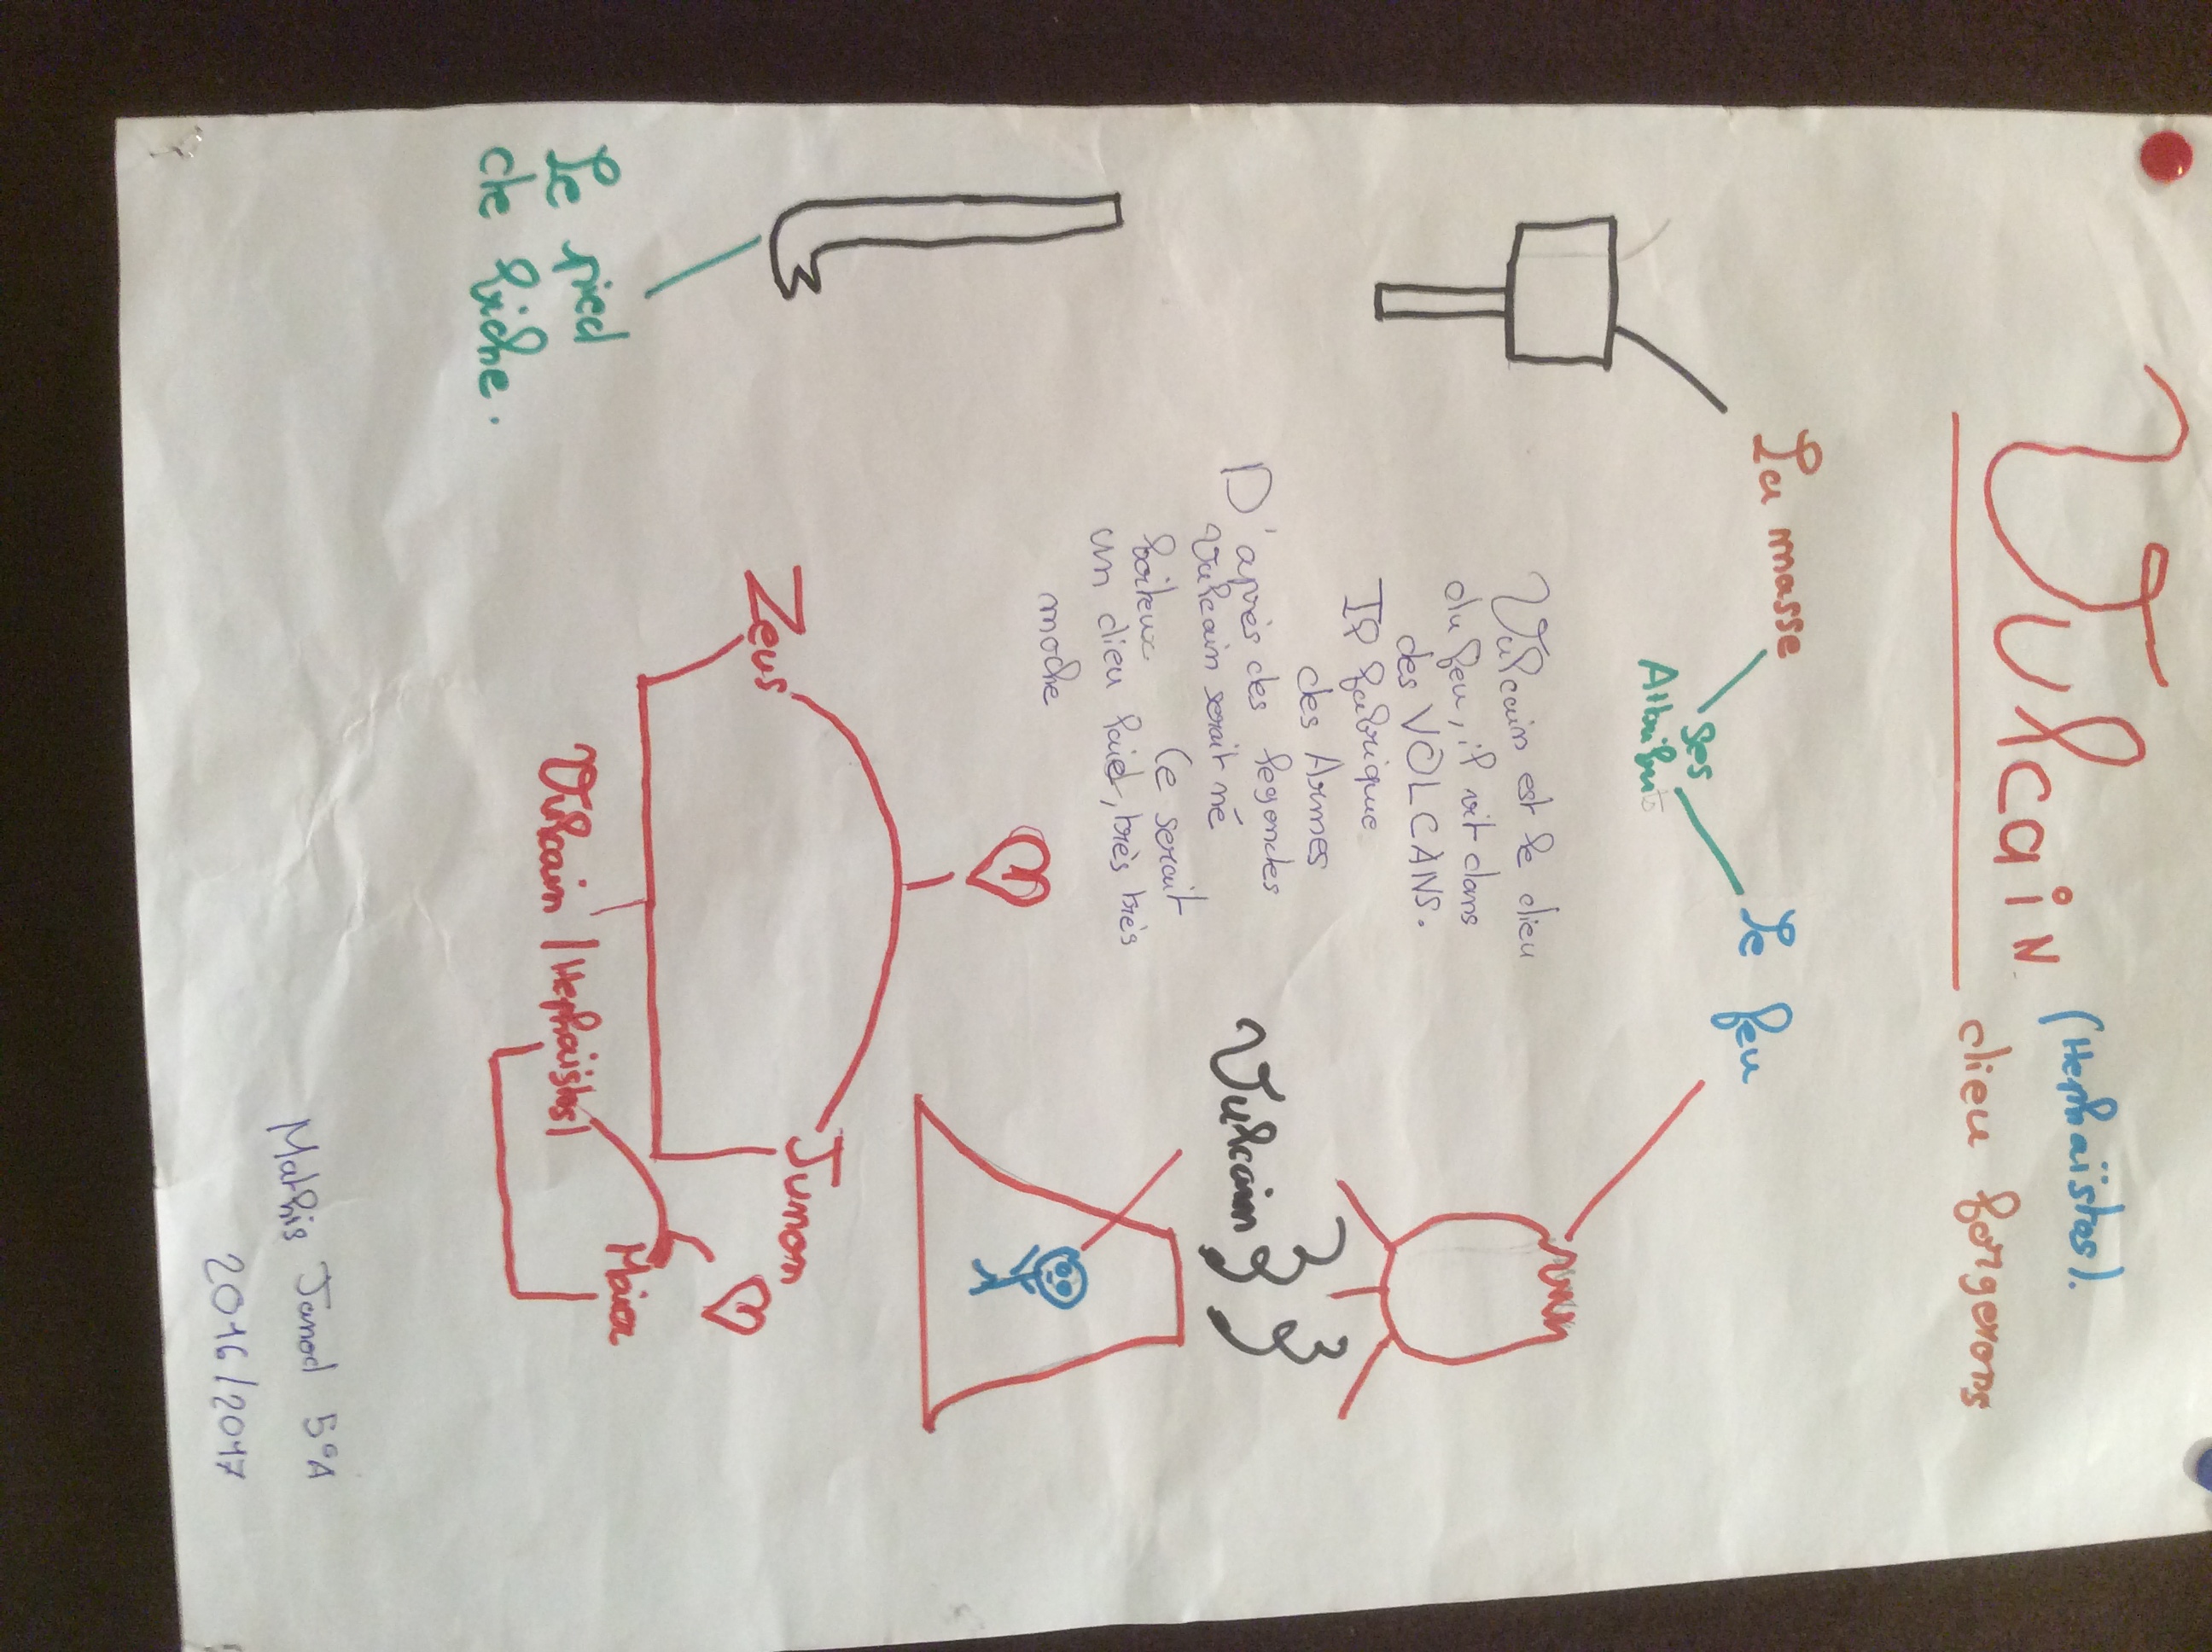 Vulcain (Hephaïstos).
dieu forgerons
La masse
Le feu
ses
Attributs
Vulcain est le dieu
du feu, il vit dans
des VOLCANS.
Il fabrique
des Armes
D'après des legendes
Vulcain serait né
boiteux Ce serait
un dieu laid, très très
moche
Vulcain
Zeus
Junon
Vulcain (Hephaistos)
Le pied
de biche.
Mathis Janod 5°A
2016/2017